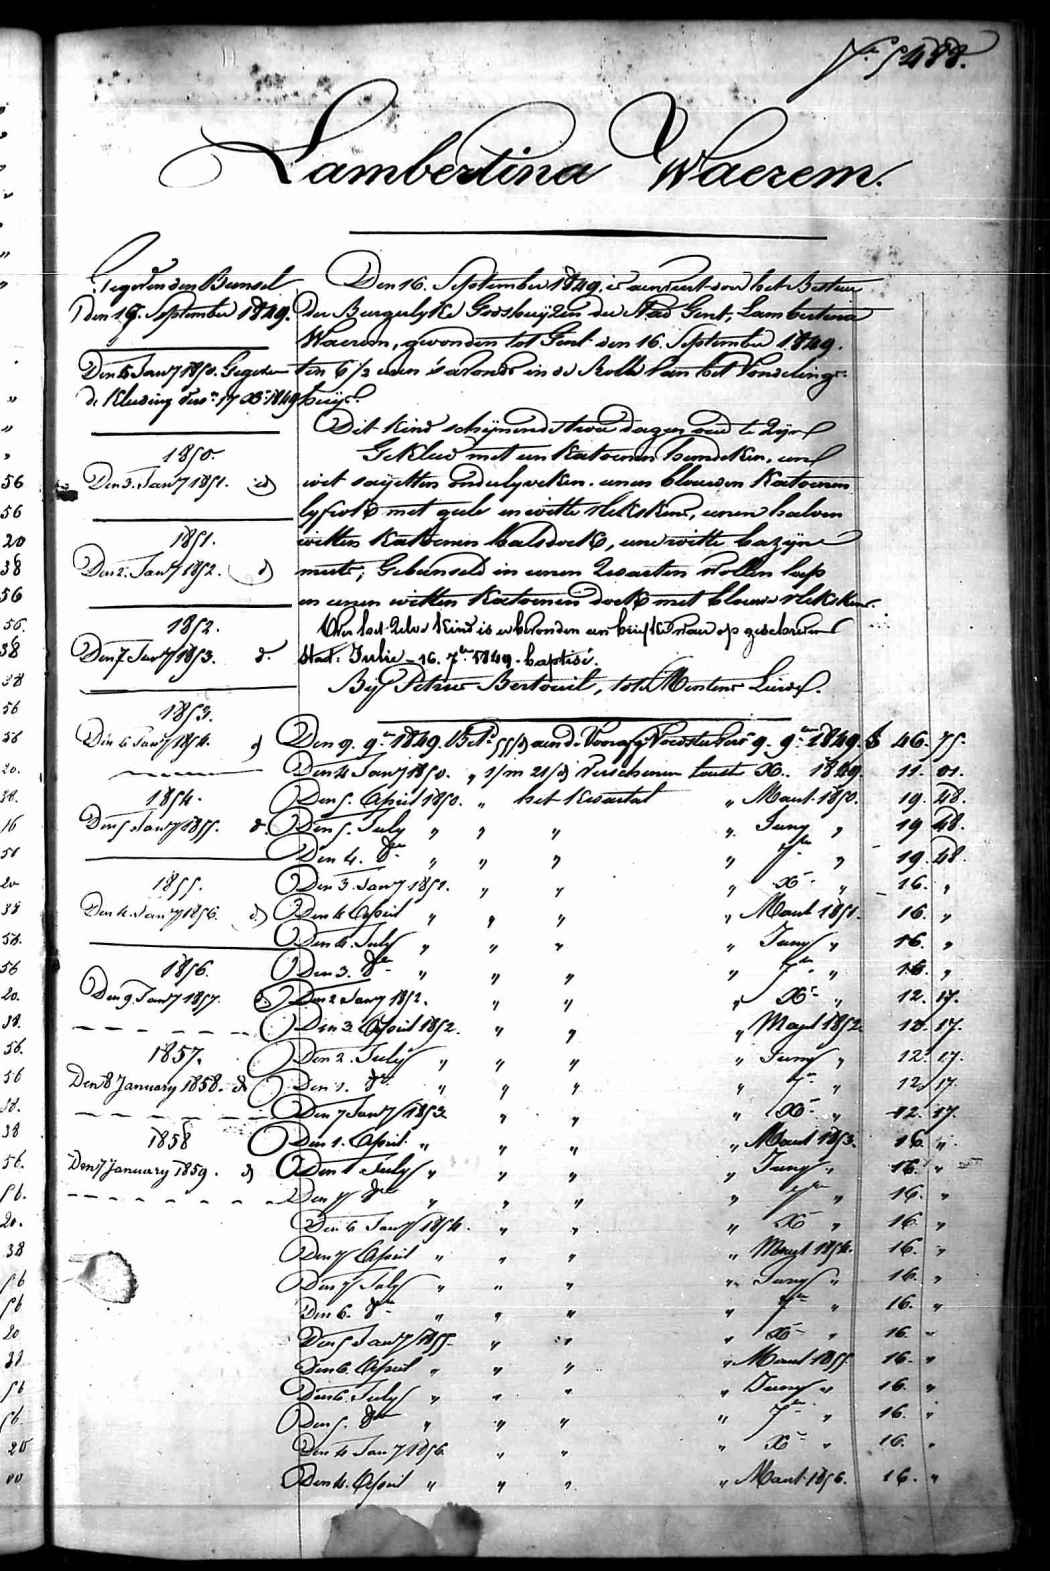 N.° 5488.
Lambertina Waerem.
Gegeven den Bunsel
den 19. September 1849.
Den 5 Jan.y 1850. Gegeven
de Kleeding
1850
Den 3. Jan.y 1851. d.
1851.
Den 2. Jan.y 1852. d.
1852.
Den 7 Jan.y 1853. d.
1853.
Den 6 Jan.y 1854. d.
1854.
Den 5 Jan.y 1855. d.
1855.
Den 4. Jan.y 1856. d.
1856.
Den 9. Jan.y 1857. d.
1857.
Den 8 January 1858. d.
1858
Den 7 January 1859. d.
Den 16. September 1849. is aenveert door het Bestier
der Burgerlyke Godshuyzen der Stad Gent, Lambertina
Waerem, gevonden tot Gent den 16. September 1849.
ten 6 1/2 uren 's avonds in de Rolle van het Vondeling-
huys.
Dit kind schynende twee dagen oud te zyn
Gekleed met een katoenen hemdeken, een
wit sayetten onderlyveken, eenen blauwen katoenen
lyfrok met geele en witte vlekskens, eenen halven
witten katoenen halsdoek, eene witte bazyne
muts; Gebunseld in eenen zwarten wollen lap
en eenen witten katoenen doek met blauwe vlekskens.
Over het zelve kind is er bevonden een briefken waer op geschreven
staet: Julie - 16. 7.bre 1849. baptisé.
By Petrus Bertouil, tot
Den 9. 9.bre 1849. Bet. aen de Voedster 9. 9.bre 1849. 46. 75.
Den 4 Jan.y 1850. " verschenen X.bre 1849. 11. 01.
Den 5. April 1850. " het kwartael " Maert 1850. 19. 48.
Den 5. July " " " " Juny " 19 48.
Den 4. 8.bre " " " " 7.bre " 19. 48.
Den 3. Jan.y 1851. " " " X.bre " 16. "
Den 4 April " " " " Maert 1851. 16. "
Den 4. July " " " " Juny " 16. "
Den 3. 8.bre " " " " 7.bre " 16. "
Den 2 Jan.y 1852. " " " X.bre " 12. 17.
Den 2. April 1852. " " " Maert 1852. 12. 17.
Den 2. July " " " " Juny " 12. 17.
Den 1. 8.bre " " " " 7.bre " 12. 17.
Den 7 Jan.y 1853. " " " X.bre " 12. 17.
Den 1. April " " " " Maert 1853. 16. "
Den 1 July " " " " Juny " 16. "
Den 7 8.bre " " " " 7.bre " 16. "
Den 6 Jan.y 1854. " " " X.bre " 16. "
Den 7 April " " " " Maert 1854. 16. "
Den 7 July " " " " Juny " 16. "
Den 6. 8.bre " " " " 7.bre " 16. "
Den 5 Jan.y 1855. " " " X.bre " 16. "
Den 6. April " " " " Maert 1855 16. "
Den 6. July " " " " Juny " 16. "
Den 5. 8.bre " " " " 7.bre " 16. "
Den 4 Jan.y 1856. " " " X.bre " 16. "
Den 4. April " " " " Maert 1856. 16. "